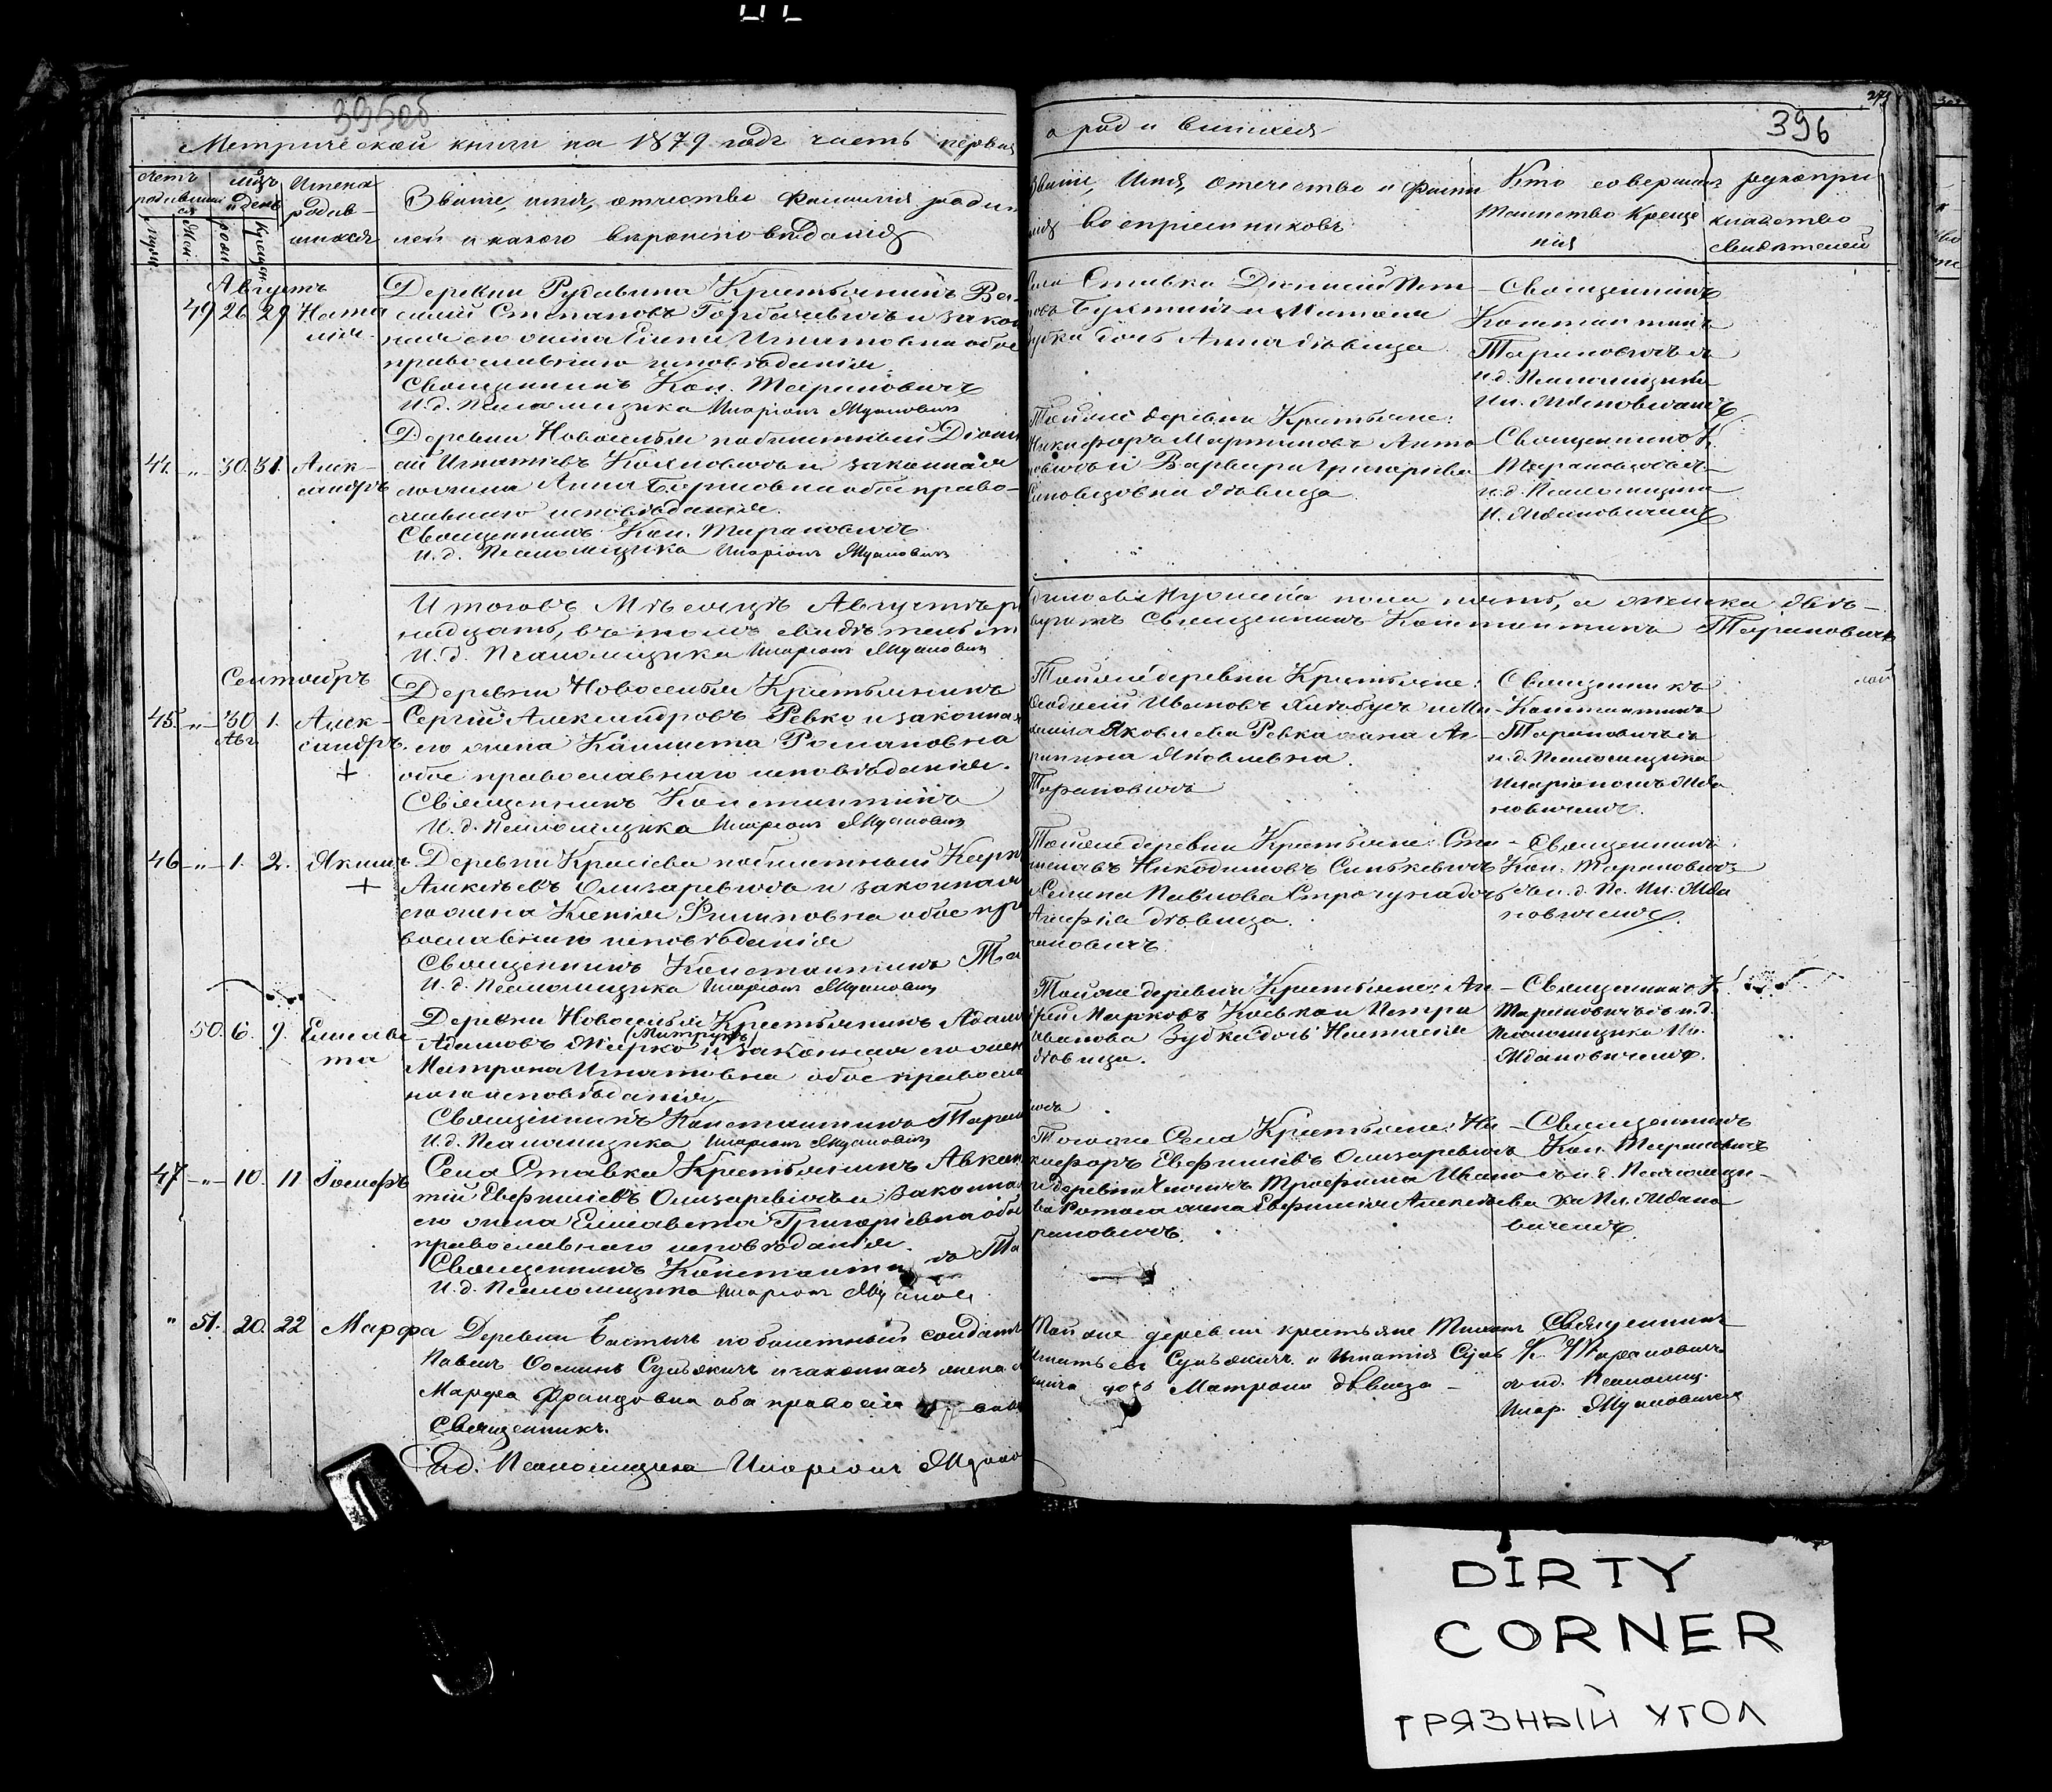 395об
Метрической книги на 1879 годъ часть первая
о родившихся
396
Счетъ родившихся
Муж.
Жен.
Мѣс. и день
рожд.
крещен.
Имена родив-
шихся
Званіе, имя, отчество фамилія родит
лей и какого вѣроисповѣданія
Званіе, Имя, отчество и фами
лія воспріемниковъ
Кто совершалъ
таинство Креще
нія
рукопри
кладство
свидѣтелей
Августъ
49 26 29 Ната
лія
Деревни Рудавина Крестьянинъ Ва-
силій Степановъ Горбачевичъ и закон
ная его жена Елена Игнатовна обое
православнаго исповѣданія.
Священникъ Кон. Тарановичъ
И. д. Псаломщика Иларіонъ Ждановичъ
Села Ставка Діонисій Пет
ровъ Бухтикъ и Матвея
Зубка дочь Анна дѣвица
Священникъ
Константинъ
Тарановичъ съ
и.д. Псаломщика
Ил. Ждановичемъ
44. " 30. 31. Алек-
сандръ
Деревни Новоселья побилетный Діони
сій Игнатіевъ Каяновичъ и законная
его жена Анна Б. обое право-
славнаго исповѣданія.
Священникъ Кон. Тарановичъ
И. д. Псаломщика Иларіонъ Ждановичъ
Той же деревни Крестьяне:
Никифоръ Мартиновъ Анто
новичъ и Варвара Григорьева
дѣвица.
Священникъ К.
Тарановичъ съ
и.д. Псаломщика
И. Ждановичемъ
Итого въ Мѣсяцѣ Августѣ р
надцать, въ томъ свидѣтельст
И. д. Псаломщика Иларіонъ Ждановичъ
дилось Мужеска пола пять, а женска двѣ-
вуетъ Священникъ Константинъ Тарановичъ
Сентябрь
45. " 30 Авг. 1. Алек-
сандръ.
+
Деревни Новоселья Крестьянинъ
Сергій Александровъ Ревко и законная
его жена Романовна
обое православнаго исповѣданія.
Священникъ Константинъ
И. д. Псаломщика Иларіонъ Ждановичъ
Той же деревни Крестьяне:
Ивановъ и Ми
хаила Яковлева Ревка жена Аг
рипина Яковлевна.
Тарановичъ
Священникъ
Константинъ
Тарановичъ съ
и.д. Псаломщика
Иларіономъ Жда
новичемъ.
46 " 1. 2. Якимъ.
+
Деревни Красіева побилетный Карп
Алексѣевъ Олизаревичъ и законная
его жена Ксенія Филиповна обое пра
вославнаго исповѣданія
Священникъ Константинъ Та
И. д. Псаломщика Иларіонъ Ждановичъ
Той же деревни Крестьяне: Сте
Никодимовъ Синькевичъ
и Семена Павлова дочь
дѣвица.
рановичъ.
Священникъ
Кон. Тарановичъ
съ и. д. Пс. Ил. Жда
новичемъ.
50. 6. 9. Елисаве
та
Деревни Новоселья Крестьянинъ Адамъ
Адамовъ Жерко (Митрукъ) и законная его жена
Матрона Игнатовна обое православ
наго исповѣданія.
Священникъ Константинъ Таран
И. д. Псаломщика Иларіонъ Ждановичъ
Той же деревни Крестьяне: Ан
дрей Марковъ Каськои Петра
Иванова Зубка дочь Наталія
дѣвица.
вичъ
Священникъ К
Тарановичъ съ и.д.
Псаломщика Ил.
Ждановичемъ.
47 " 10. 11 Іосифъ
Села Ставка Крестьянинъ Авкен
тій Евфиміевъ Олизаревичъ и законная
его жена Елисавета Григоріевна обое
православнаго исповѣданія.
Священникъ Константинъ Та
И. д. Псаломщика Иларіонъ Ждановичъ
Того же Села Крестьяне: Ни
кифоръ Евфиміевъ Олизаревичъ
и деревни Трофима Ивано
ва жена Евфимія Алексѣева
рановичъ.
Священникъ
Кон. Тарановичъ
съ и.д. Псаломщи-
ка Ил. Ждано
вичемъ
" 51. 20. 22 Марфа
Деревни Бастичъ побилетный солдатъ
Павелъ Осипинъ Сульжичъ и законная жена е
Марфа Францовна оба православ
Священникъ.
И.д. Псаломщика Иларіонъ Ждано
Той же деревни крестьяне
Игнатьевъ Сульжичъ и Игнатія Суль
жича дочь Матрона дѣвица -
Священникъ
К. Тарановичъ
съ и.д. Псаломщ.
Илар. Ждановичемъ
DIRTY
CORNER
ГРЯЗНЫЙ УГОЛ